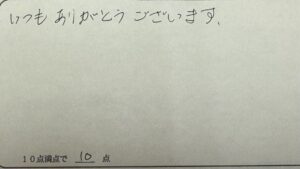 いつもありがとうございます。
10点満点で 10 点